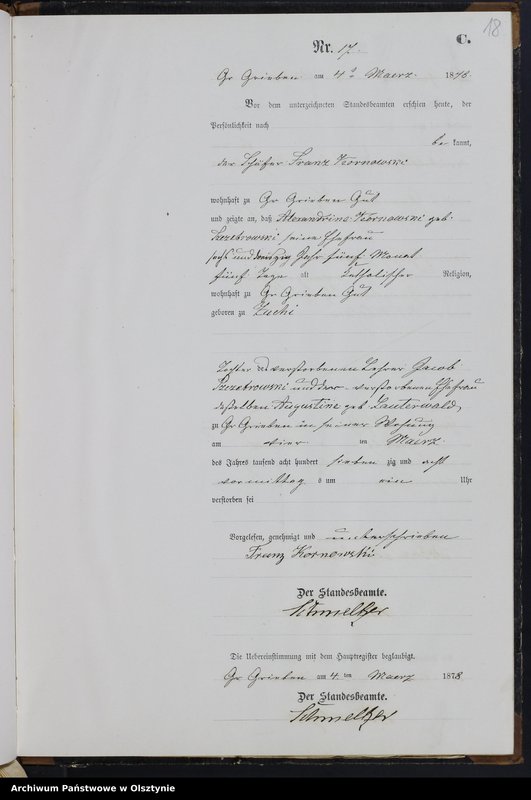 18
C.
Nr. 17.
Gr Grieben am 4t Maerz 1878
Vor dem unterzeichneten Standesbeamten erschien heute, der
Persönlichkeit nach
be kannt,
der Schäfer Franz Kornowski
wohnhaft zu Gr Grieben Gut
und zeigte an, daß Alexandrine Kornowski geb.
seine Ehefrau
sechs und Jahr fünf Monat
fünf Tage alt katholischer Religion,
wohnhaft zu Gr Grieben Gut
geboren zu
Tochter des verstorbenen Lehrer Jacob
und der verstorbenen Ehefrau
desselben Augustine geb. Lauterwald
zu Gr Grieben in seiner Wohnung
am vier ten Maerz
des Jahres tausend acht hundert sieben zig und acht
vormittag s um ein Uhr
verstorben sei
Vorgelesen, genehmigt und unterschrieben
Franz Kornowski
Der Standesbeamte.
Schmeltzer
Die Uebereinstimmung mit dem Hauptregister beglaubigt.
Gr Grieben am 4. ten Maerz 1878
Der Standesbeamte.
Schmeltzer
Archiwum Państwowe w Olsztynie